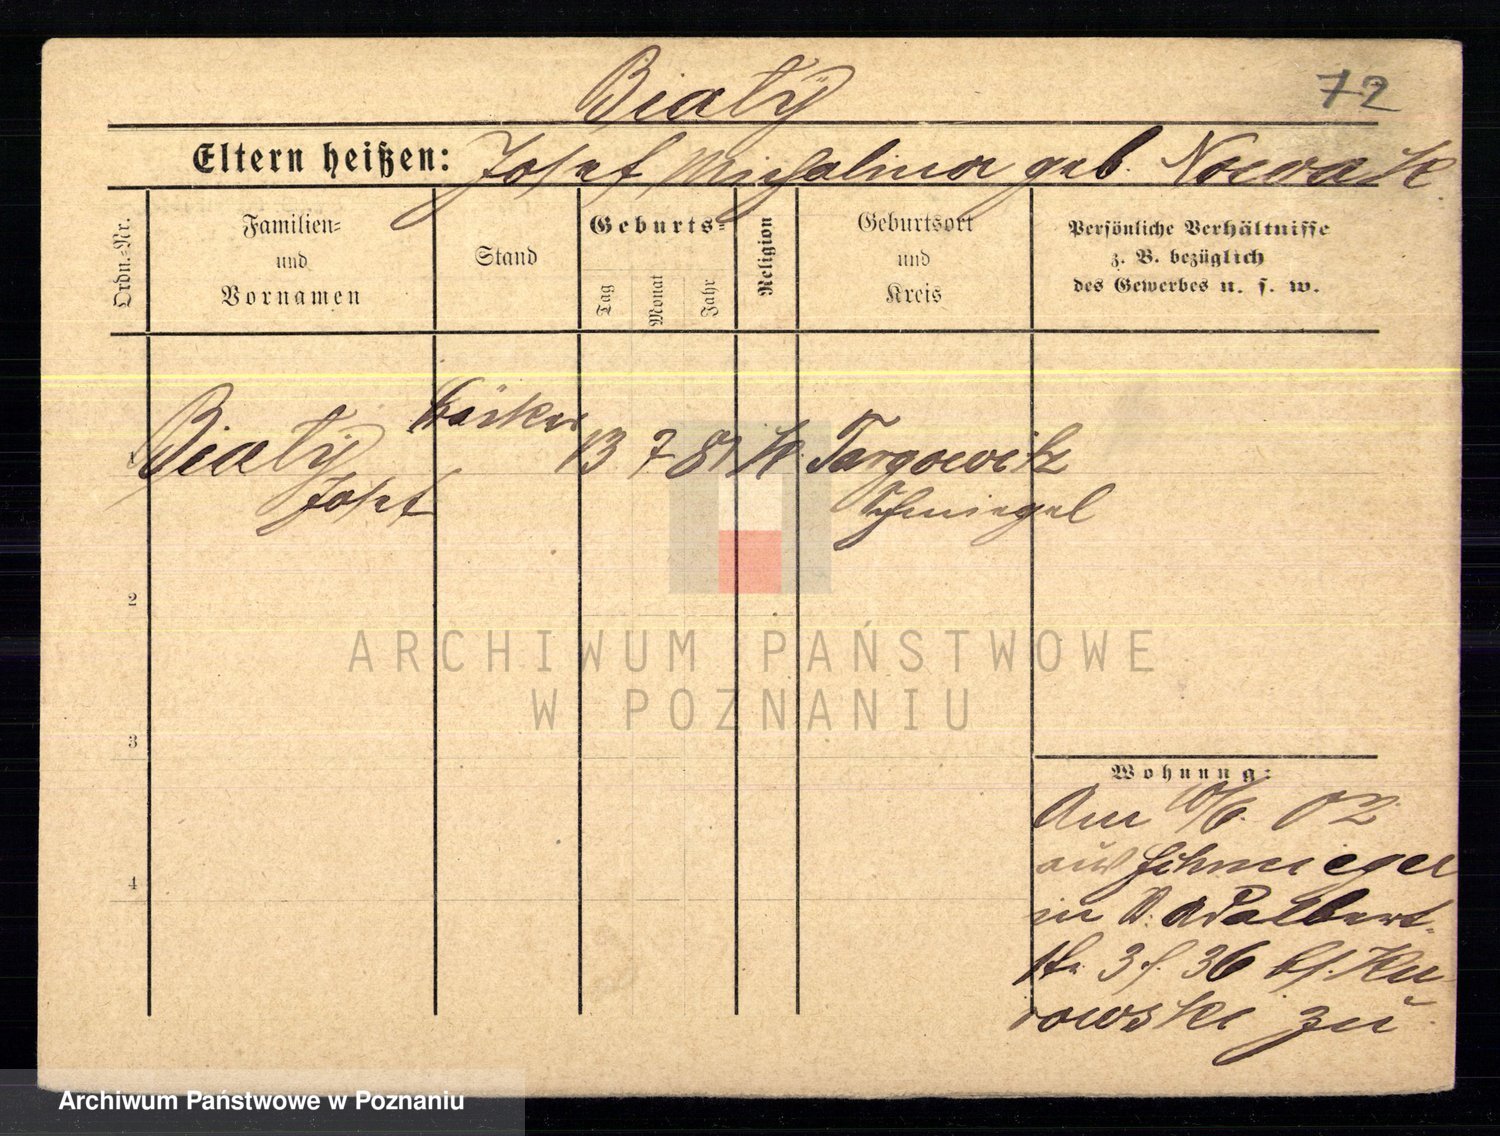 Bialy
72
Eltern heißen: Josef Michalina geb. Nowak
Ordn.-Nr.
Familien-
und
Vornamen
Stand
Geburts-
Tag
Monat
Jahr
Religion
Geburtsort
und
Kreis
Persönliche Verhältnisse
z. B. bezüglich
des Gewerbes u. s. w.
Bialy
Josef
13 7 81 K. Targowitz
Schmiegel
2
3
4
Wohnung:
Am 10/6. 02
aus Schmiegel
in St. Adalbert-
str. 36 bs. Ku-
rowski zu
ARCHIWUM PAŃSTWOWE
W POZNANIU
Archiwum Państwowe w Poznaniu